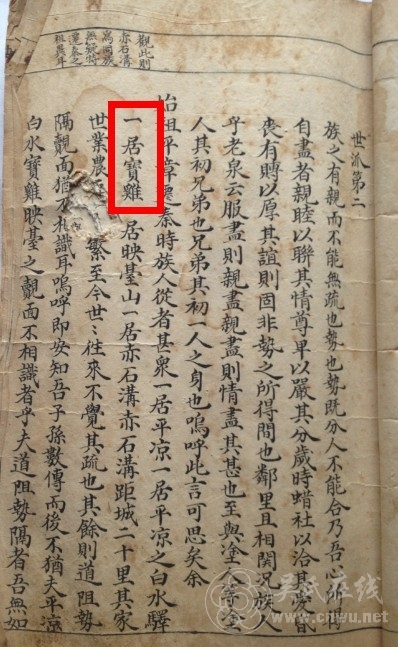 觀此則
赤石溝
無疑特
遷秦之
祖異耳
世派第二
族之有親而不能無疏也勢也勢既分人不能合乃吾心
自盡者親睦以聯其情尊卑以嚴其分歲時蜡社以洽其愛昏
喪有賻以厚其誼則固非勢之所得間也鄰里且相関况族人
乎老泉云服盡則親盡親盡則情盡其甚也至與塗人等塗
人其初兄弟也兄弟其初一人之身也嗚呼此言可思矣余
始祖平章遷秦時族人從者甚衆一居平凉一居平凉之白水驛
一居寶雞 居映臺山一居赤石溝赤石溝距城二十里其家
世業農 繁至今世〻往來不覺其疏也其餘則道阻勢
隔覿面猶 識耳嗚呼即安知吾子孫數傳而後不猶夫平凉
白水寶雞映臺之覿面不相識者乎夫道阻勢隔者吾無如
吴氏在线
www.cnwu.net